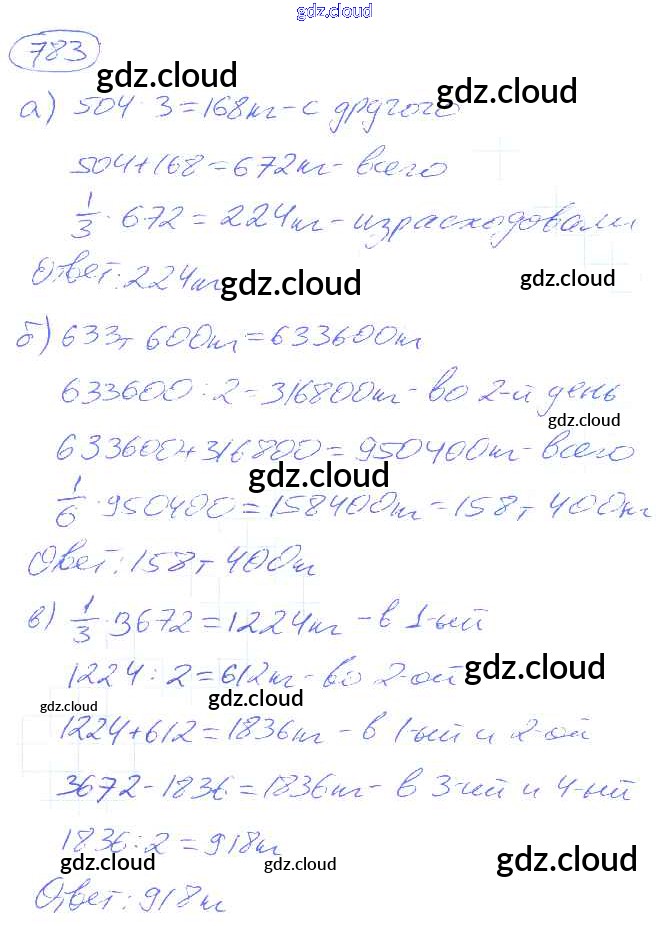 gdz.cloud
783
gdz.cloud
gdz.cloud
а) 504 : 3 = 168 кг - с другого
504 + 168 = 672 кг - всего
1/3 · 672 = 224 кг - израсходовали
Ответ: 224 кг
gdz.cloud
gdz.cloud
б) 633 т 600 кг = 633600 кг
633600 : 2 = 316800 кг - во 2-й день
gdz.cloud
633600 + 316800 = 950400 кг - всего
gdz.cloud
1/6 · 950400 = 158400 кг = 158 т 400 кг
Ответ: 158 т 400 кг
в) 1/3 · 3672 = 1224 кг - в 1-ый
1224 : 2 = 612 кг - во 2-ой
gdz.cloud
gdz.cloud
gdz.cloud
1224 + 612 = 1836 кг - в 1-ый и 2-ой
3672 - 1836 = 1836 кг - в 3-ий и 4-ый
1836 : 2 = 918 кг
gdz.cloud
gdz.cloud
gdz.cloud
Ответ: 918 кг